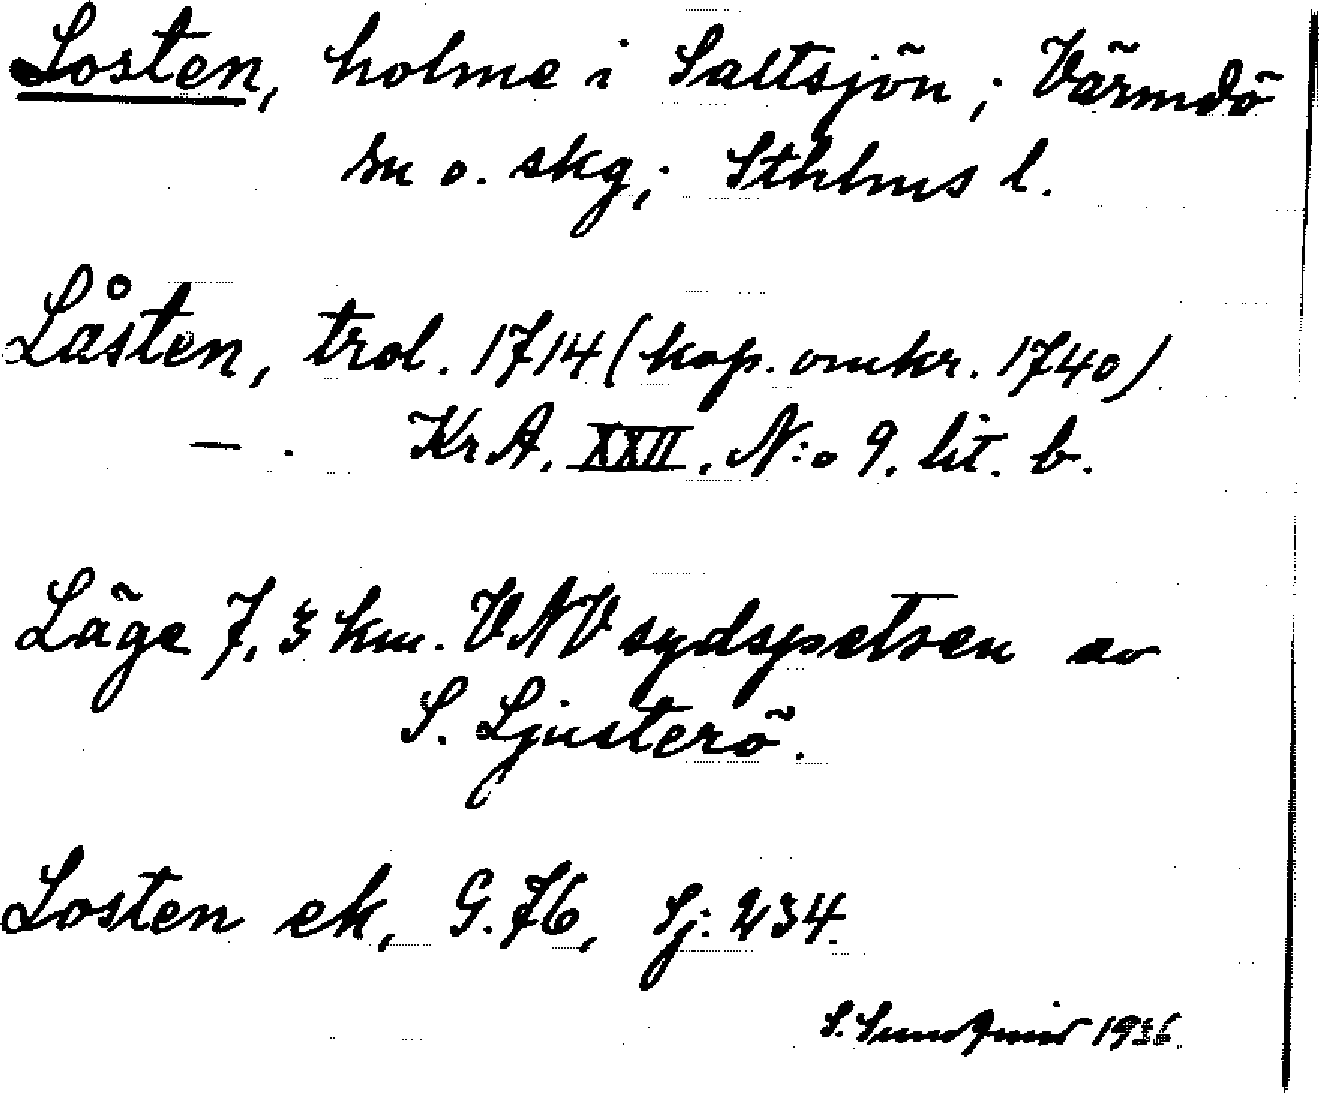 Losten, holme i Saltsjön; Värmdö
sn o. skg; Sthlms l.
Låsten, trol. 1714 (kop. omkr. 1740)
— . KrA. XXII. N:o 9. lit. b.
Läge 7,3 km. VNV sydspetsen av
S. Ljusterö.
Losten ek, G. 76, Sj: 234.
S. 1936.